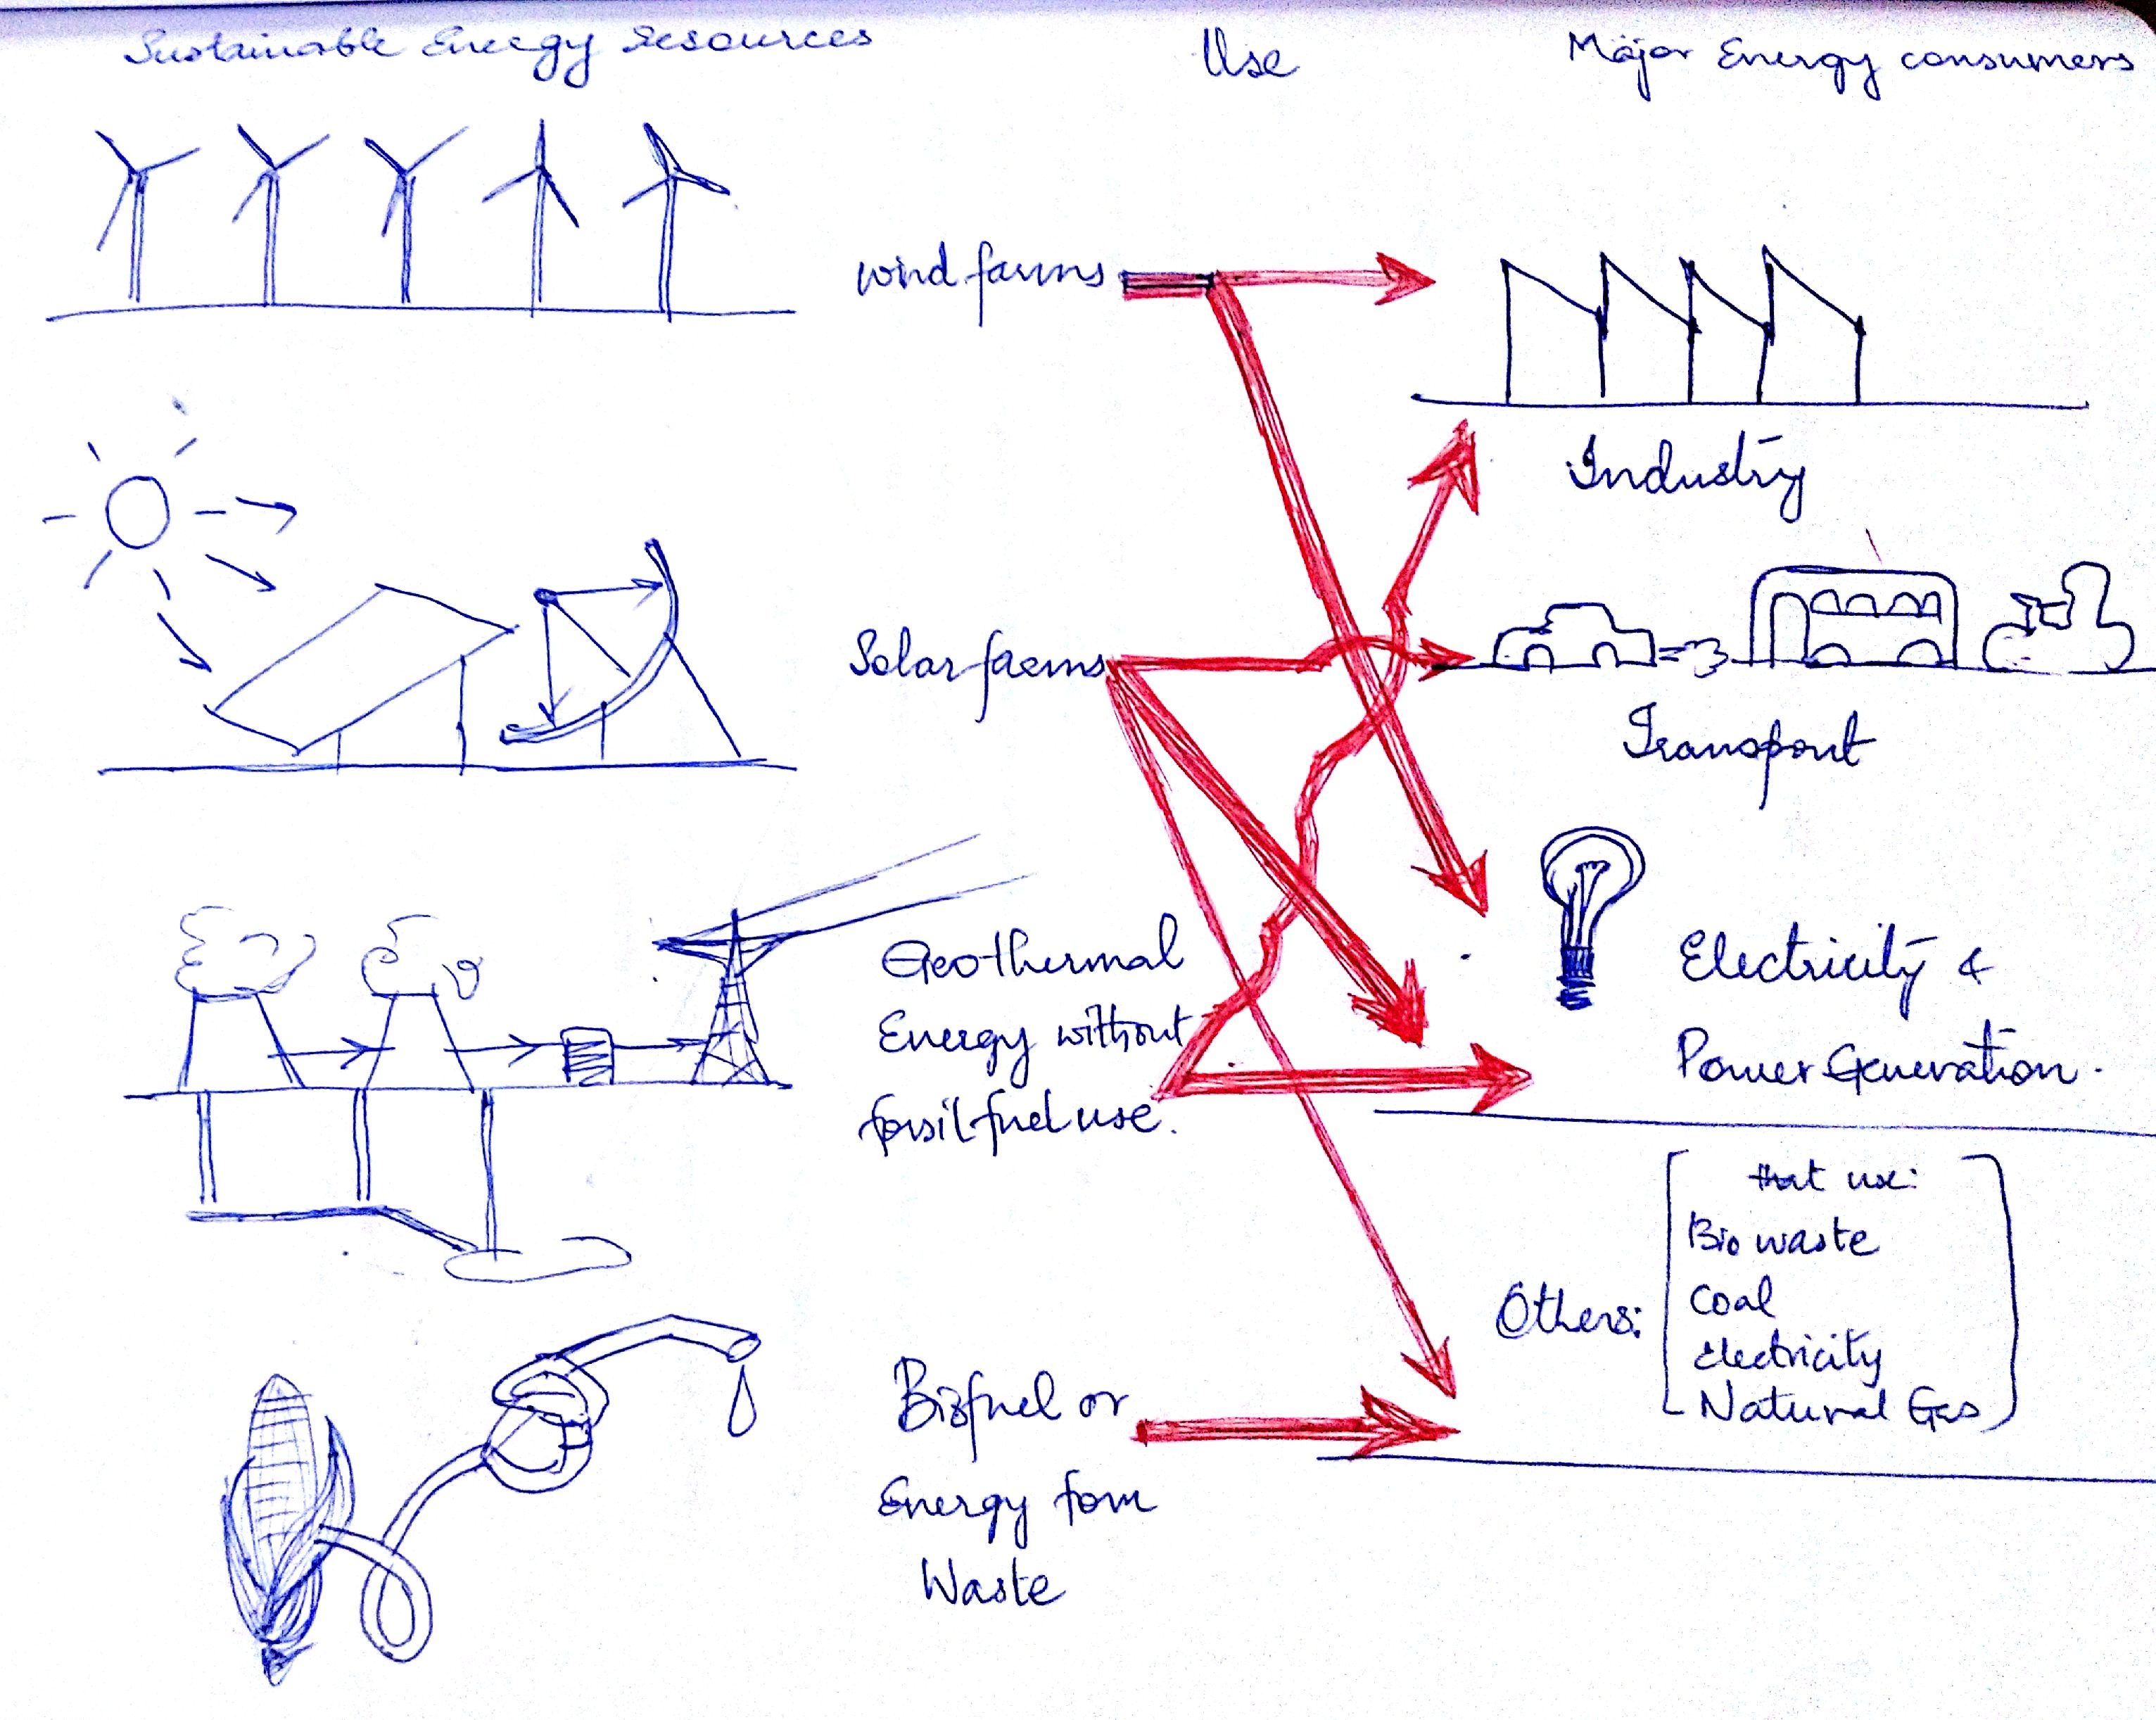 Sustainable Energy resources
Use
Major Energy consumers
wind farms
Industry
Solar farms
Transport
Geothermal
Energy without
fossil fuel use.
Electricity &
Power Generation.
Others:
that use:
Bio waste
Coal
Electricity
Natural Gas
Biofuel or
Energy fom
Waste